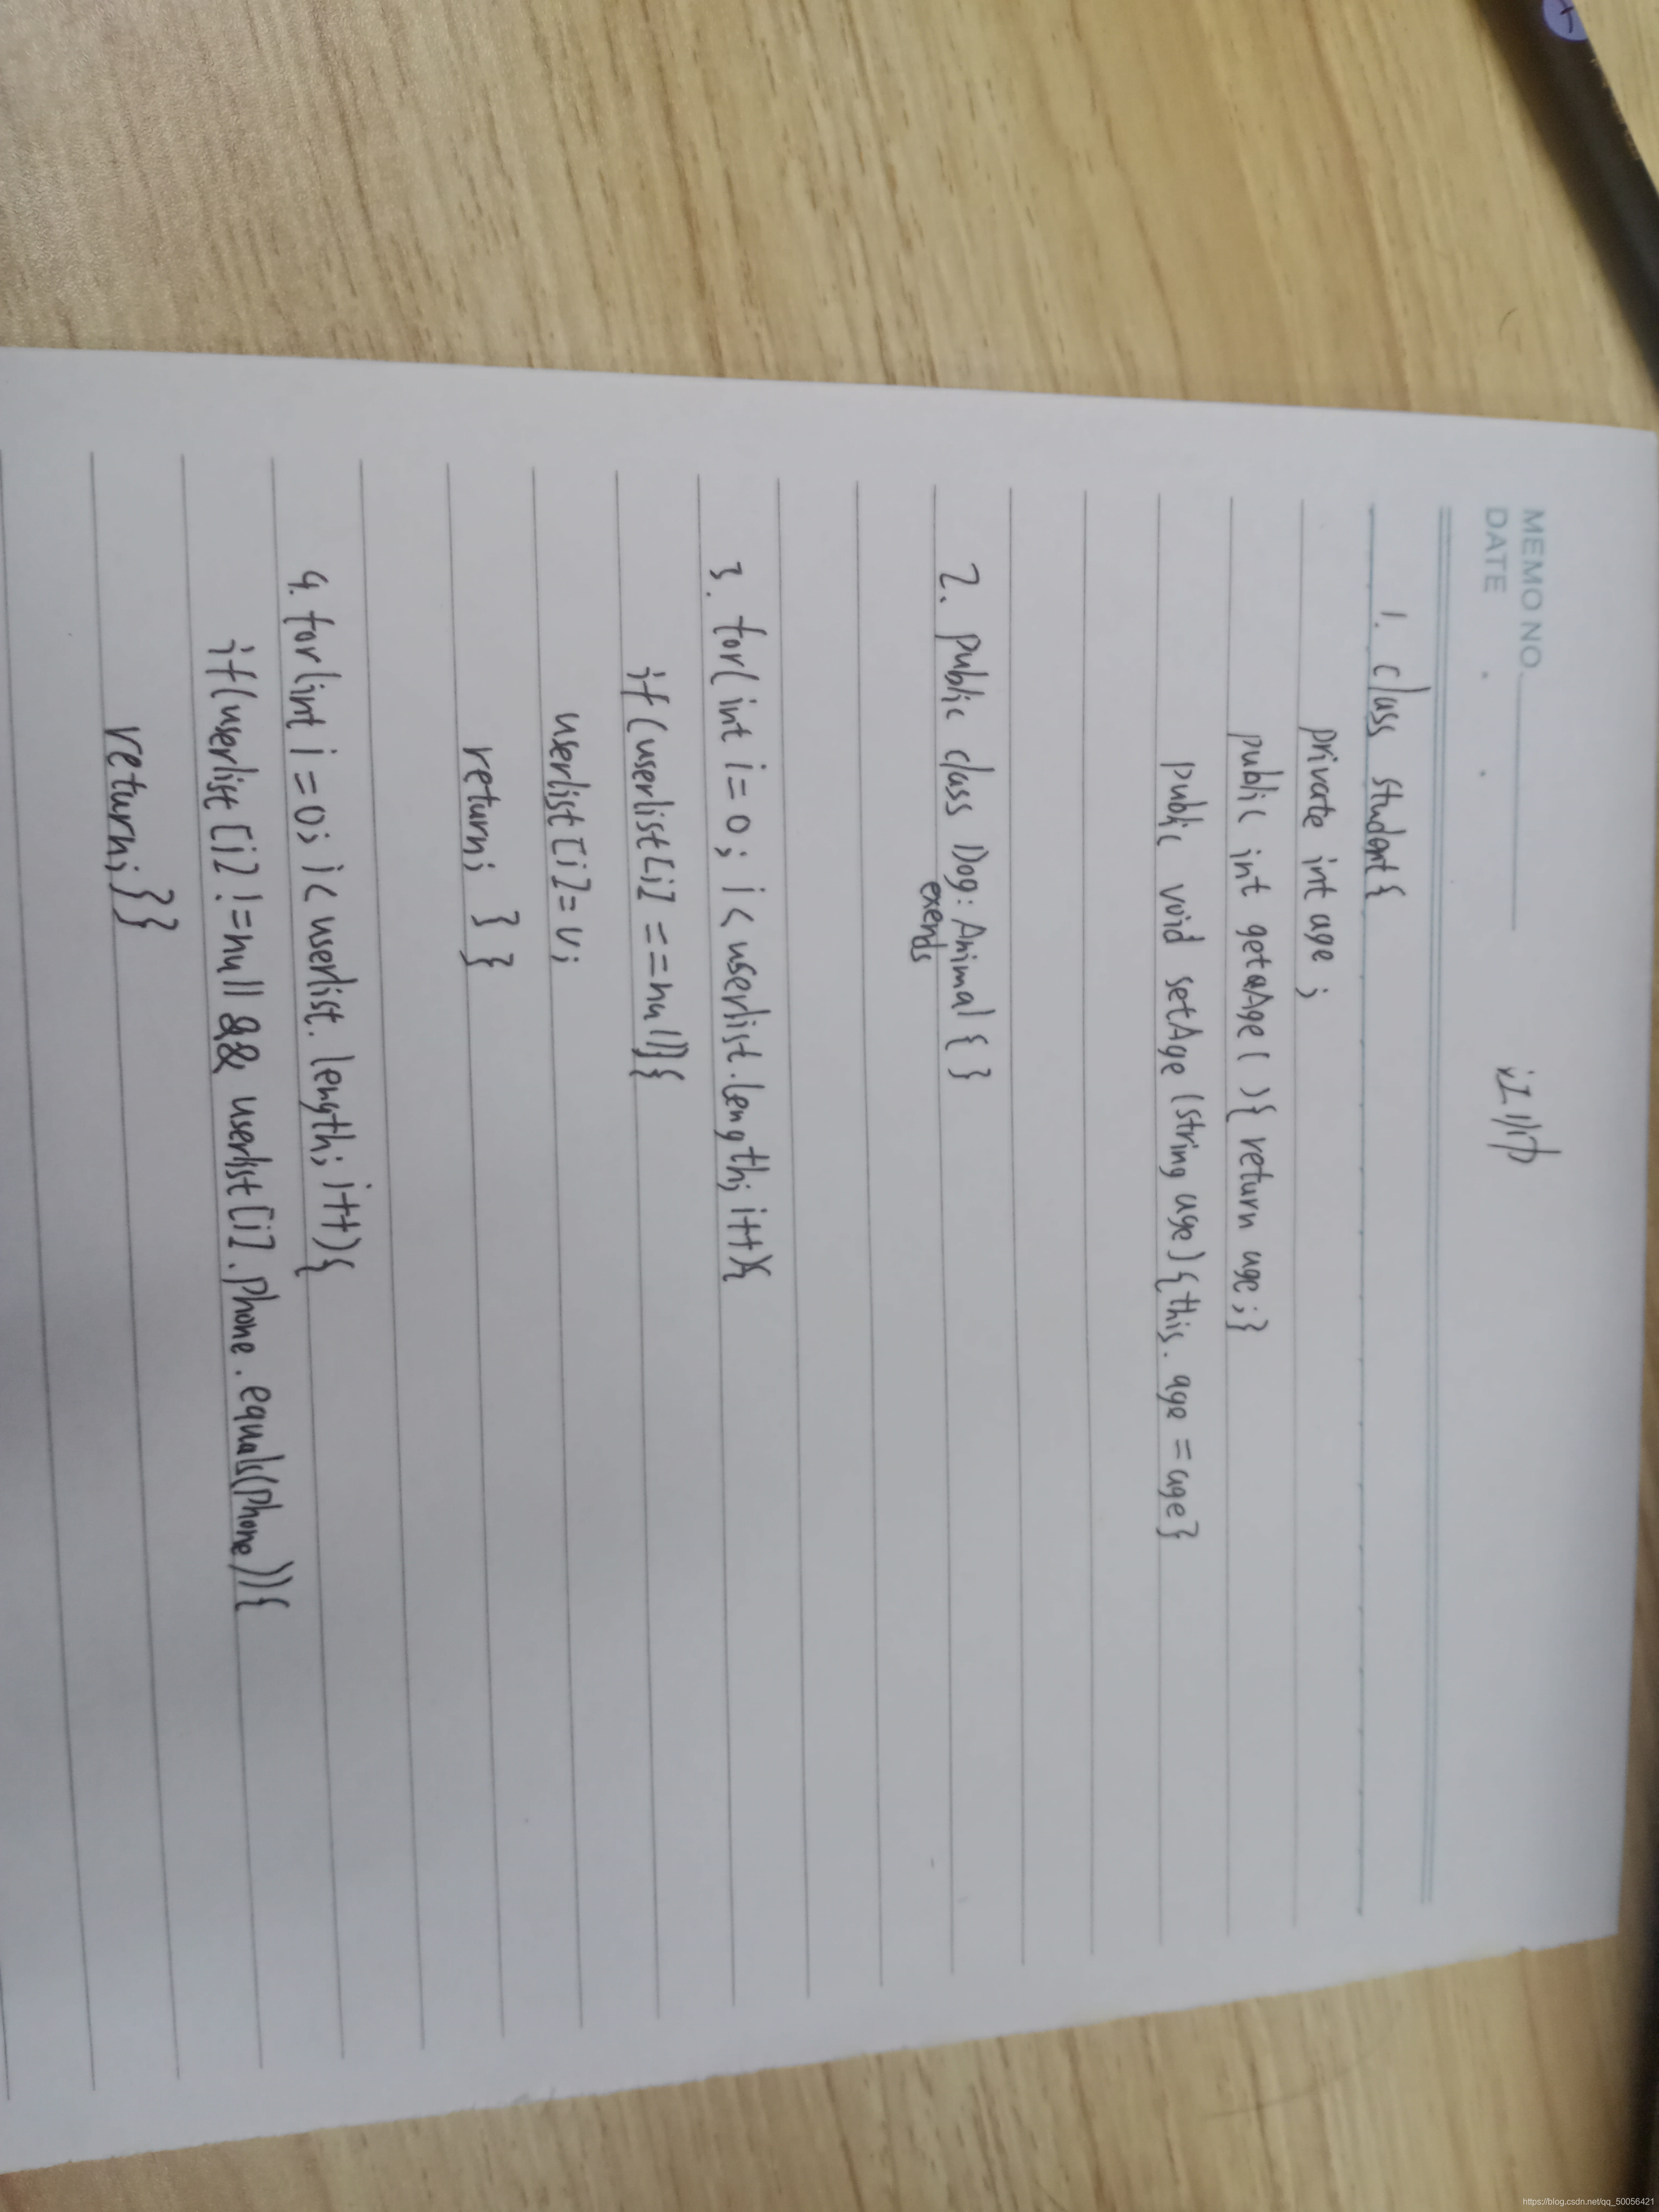 MEMO NO.
DATE
1. class student{
private int age ;
public int getaAge ( ) { return age ; }
public void setAge (string age) { this. age = age}
2. public class Dog : Animal { }
exends
3. for( int i = 0 ; i < userlist.length; i++){
if (userlist[i] == null){
userlist[i] = u;
return; } }
4. for(int i = 0; i < userlist. length; i++){
if(userlist [i] != null && userlist[i]. Phone . equals(Phone)){
return; }}
https://blog.csdn.net/qq_50056421